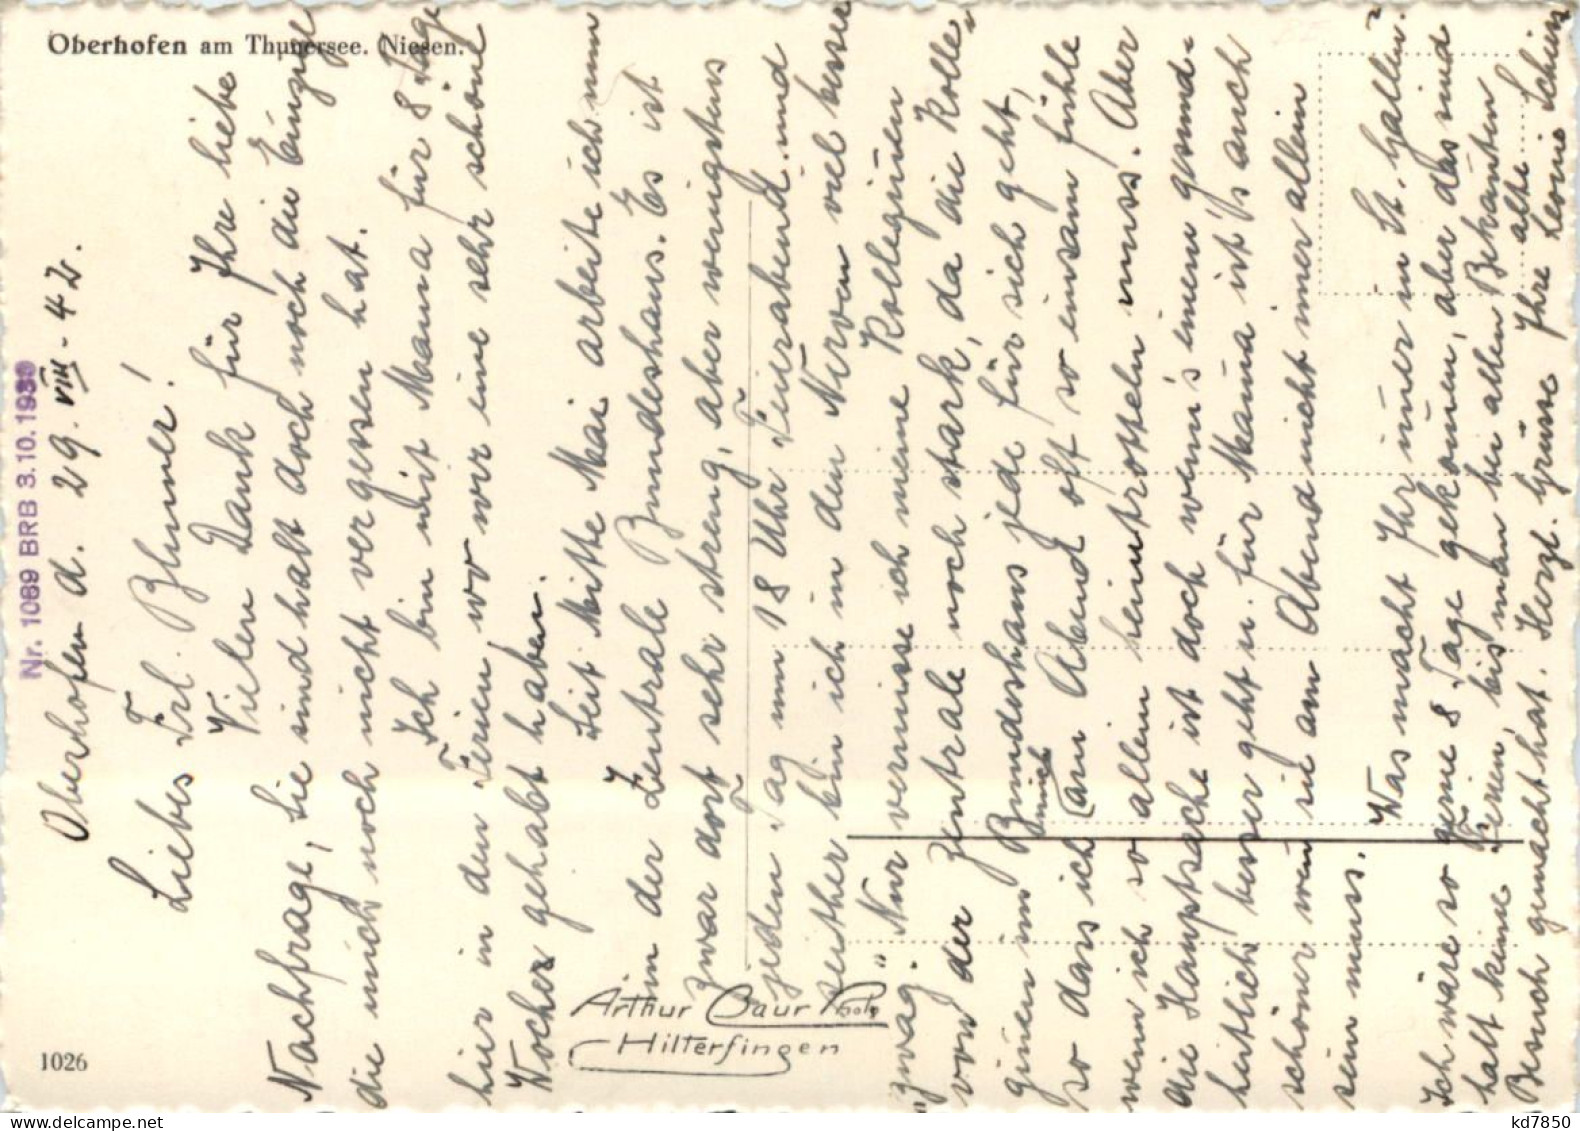 Oberhofen am Thunersee. Niesen.
Nr. 1089 BRB 3.10.1939
Oberhofen d. 29. VIII - 42.
Liebes Frl. Blumer!
Vielen Dank für Ihre liebe
Nachfrage, Sie sind halt doch noch die Einzige
die mich noch nicht vergessen hat.
Ich bin mit Mama für 8 Tage
hier in den Ferien wo wir eine sehr schöne
Woche gehabt haben.
Seit Mitte Mai arbeite ich nun
in der Zentrale Bundeshaus. Es ist
zwar dort sehr streng, aber wenigstens
jeden Tag um 18 Uhr Feierabend und
seither bin ich in den Nerven viel besser
"zwäg." Nur vermisse ich meine Kolleginen
von der Zentrale noch stark, da die Kolle-
ginen im Bundeshaus jede für sich geht,
so dass ich mich am Abend oft so einsam fühle
wenn ich so allein heimtrotteln muss. Aber
die Hauptsache ist doch wenn's einem gesund-
heitlich besser geht u. für Mama ist's auch
schöner wen sie am Abend nicht imer allein
sein muss.
Was macht Ihr imer in St. Gallen?
Ich wäre so gerne 8 Tage gekomen, aber das sind
halt keine "Ferien", bis man bei allen Bekanten
Besuch gemacht hat. Herzl. Grüsse Ihre alte
Leonie
Arthur Baur Phot.
Hilterfingen
1026
kd7850